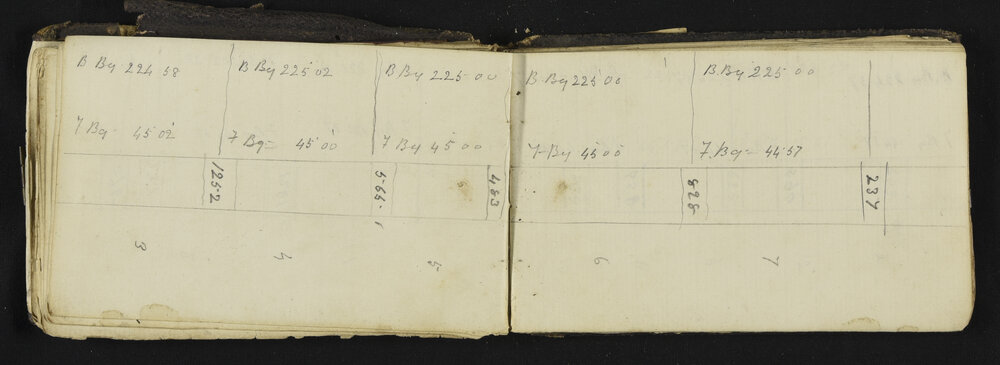 B By 224 58
B By 225 02
B By 225 00
B By 225 00
B. By 225 00
7 By - 45 02
7 By = 45 00
7 By 45 00
7 By 45 00
7. By = 44.57
1252
5.66
483
528
237
3
4
5
6
7